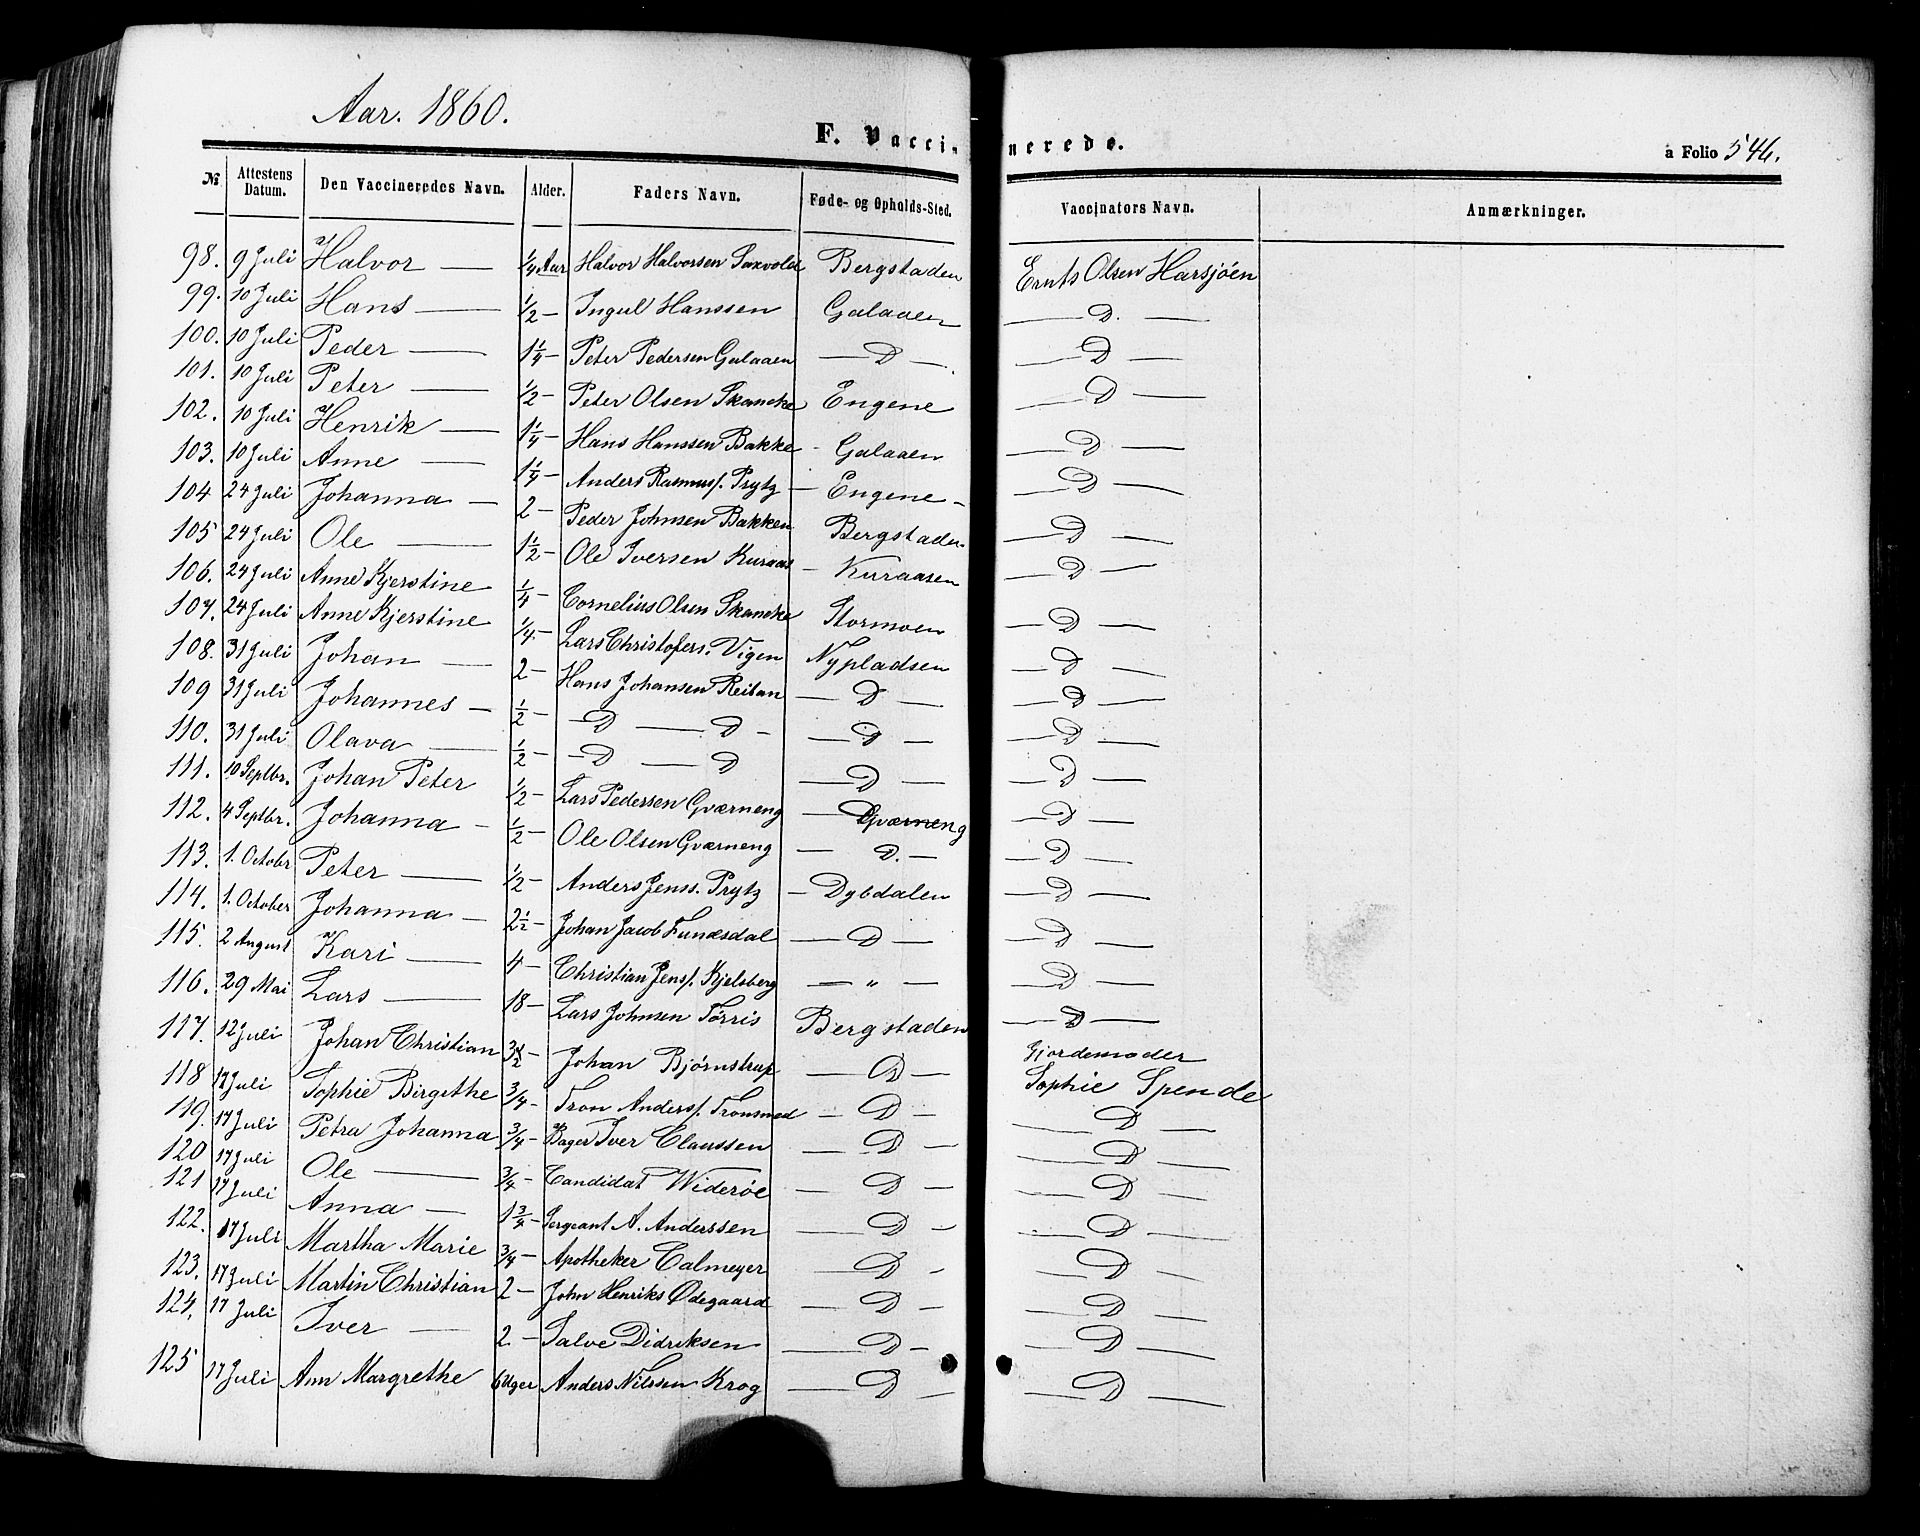 Aar. 1860.
F. Vaccinerede.
a Folio 546.
№ Attestens Datum. Den Vaccineredes Navn. Alder. Faders Navn. Føde- og Opholds-Sted. Vaccinators Navn. Anmærkninger.
98. 9 Juli Halvor — 1/4 Aar Halvor Halvorsen Saxvold Bergstaden Ernts Olsen Harsjøen
99. 10 Juli Hans — 1/2 — Ingul Hanssen Galaaen — D. —
100. 10 Juli Peder — 1 1/4 — Peter Pedersen Galaaen — D — — D —
101. 10 Juli Peter — 1/2 — Peter Olsen Skancke Engene — D —
102. 10 Juli Henrik — 1 1/4 — Hans Hanssen Bakke - Galaaen — D —
103. 10 Juli Anne — 1 1/4 — Anders Rasmuss. Prytz — Engene — — D —
104 24 Juli Johanna — 2 — Peder Johnsen Bakken Bergstaden — D —
105 24 Juli Ole — 1 1/2 — Ole Iversen Kuraas — Kuraasen — D —
106. 24 Juli Anne Kjerstine 1/4 — Cornelius Olsen Skancke Stormoen — D —
107. 24 Juli Anne Kjerstine 1/4 — Lars Christofers. Vigen Nypladsen — D —
108. 31 Juli Johan — 2 — Hans Johansen Reitan — D — — D —
109 31 Juli Johannes — 1/2 — — D — D — — D — — D —
110. 31 Juli Olava — 1/2 — — D — D — D — — D —
111. 10 Septbr. Johan Peter 1/2 — Lars Pedersen Gværneng — Gværneng — D —
112. 4 Septbr. Johanna — 1/2 — Ole Olsen Gværneng — D. — — D —
113. 1. Octobr Peter — 1/2 — Anders Jenss. Prytz — Dybdalen — D —
114. 1. October Johanna — 2 1/2 — Johan Jacob Fundesdal — D — — D —
115. 2 August Kari — 4 — Christian Jenss. Kjelsberg — " — — D —
116. 29 Mai Lars — 18 — Lars Johnsen Tørris Bergstaden — D —
117. 12 Juli Johan Christian Johan Bjørnstrup — D — Gjordemoder
Sophie Spende
118 17 Juli Sophie Birgithe 3/4 — Tron Anderss. Tronsmed — D — — D —
119. 17 Juli Petra Johanna 3/4 — Bager Iver Claussen — D — — D —
120 17 Juli Ole — 3/4 — Candidat Widerøe — D — — D —
121 17 Juli Anna — 1 3/4 — Sergeant A. Anderssen — D — — D —
122. 17 Juli Martha Marie 3/4 — Apotheker Calmeyer — D — — D —
123. 17 Juli Martin Christian 2 — John Henriks Ødegaard — D — — D —
124. 17 Juli Iver — 2 — Salve Didriksen — D — — D —
125 17 Juli Ann Margrethe 6 Uger Anders Nilssen Krog — D — — D —